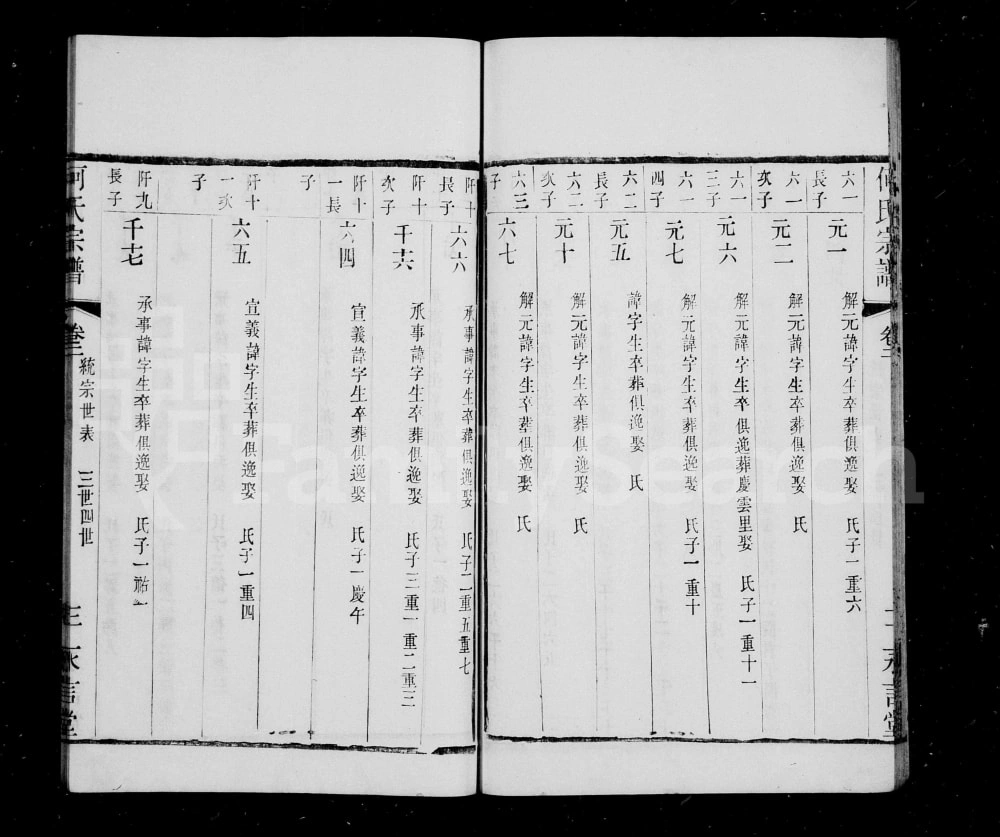 何氏宗譜 卷二 二 永言堂
六一長子 元一 解元諱字生卒葬俱逸娶 氏子一重六
六一次子 元二 解元諱字生卒葬俱逸娶 氏
六一三子 元六 解元諱字生卒俱逸葬慶雲里娶 氏子一重十一
六一四子 元七 解元諱字生卒葬俱逸娶 氏子一重十
六二長子 元五 諱字生卒葬俱逸娶 氏
六二次子 元十 解元諱字生卒葬俱逸娶 氏
六三子 六七 解元諱字生卒葬俱逸娶 氏
阡十長子 六六 承事諱字生卒葬俱逸娶 氏子二重五重七
阡十次子 千六 承事諱字生卒葬俱逸娶 氏子三重一重二重三
阡十一長子 六四 宣義諱字生卒葬俱逸娶 氏子一慶午
阡十一次子 六五 宣義諱字生卒葬俱逸娶 氏子一重四
阡九長子 千七 承事諱字生卒葬俱逸娶 氏子一祐一
何氏宗譜 卷二 統宗世表 三世四世 三 永言堂
FamilySearch